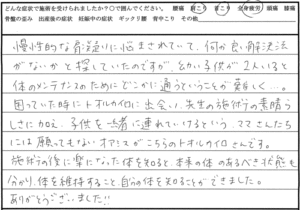 どんな症状で施術を受けられましたか？○で囲んでください。 腰痛 肩こり 首こり 全身疲労 頭痛 膝痛
骨盤の歪み 出産後の症状 妊娠中の症状 ギックリ腰 背中こり その他
慢性的な肩凝りに悩まされていて、何か良い解決法
がないかと探していたのですが、幼い子供が2人いると
体のメンテナンスのためにどこかに通うということが難しく…。
困っていた時にトオルカイロに出会い、先生の施術の素晴
しさに加え、子供も一者に連れていけるという、ママさんたち
には願ってもないオアシスがこちらのトオルカイロさんです。
施術の後に楽になった体を知ると、本来の体のあるべき状態も
分かり、体を維持すること、自分の体を知ることができました。
ありがとうございました!!